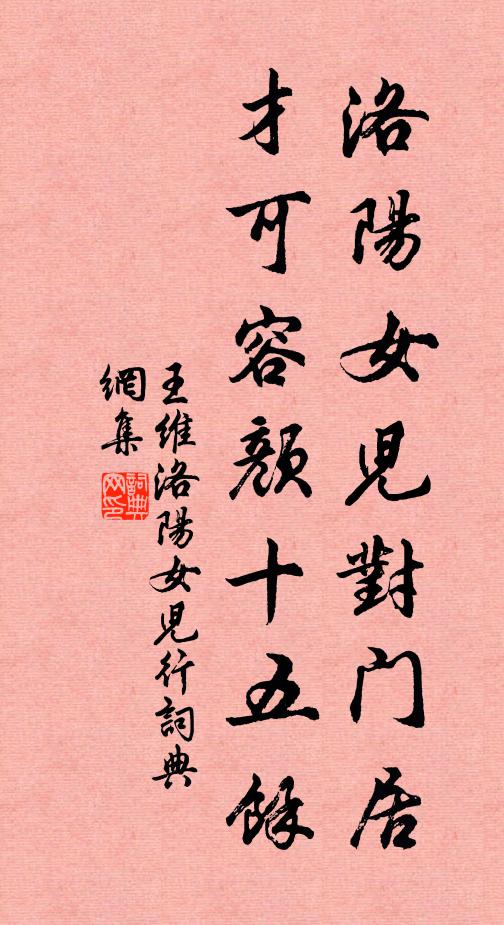 洛陽女兒對門居
才可容顏十五餘
王維洛陽女兒行詞典
網集
詞典
网印